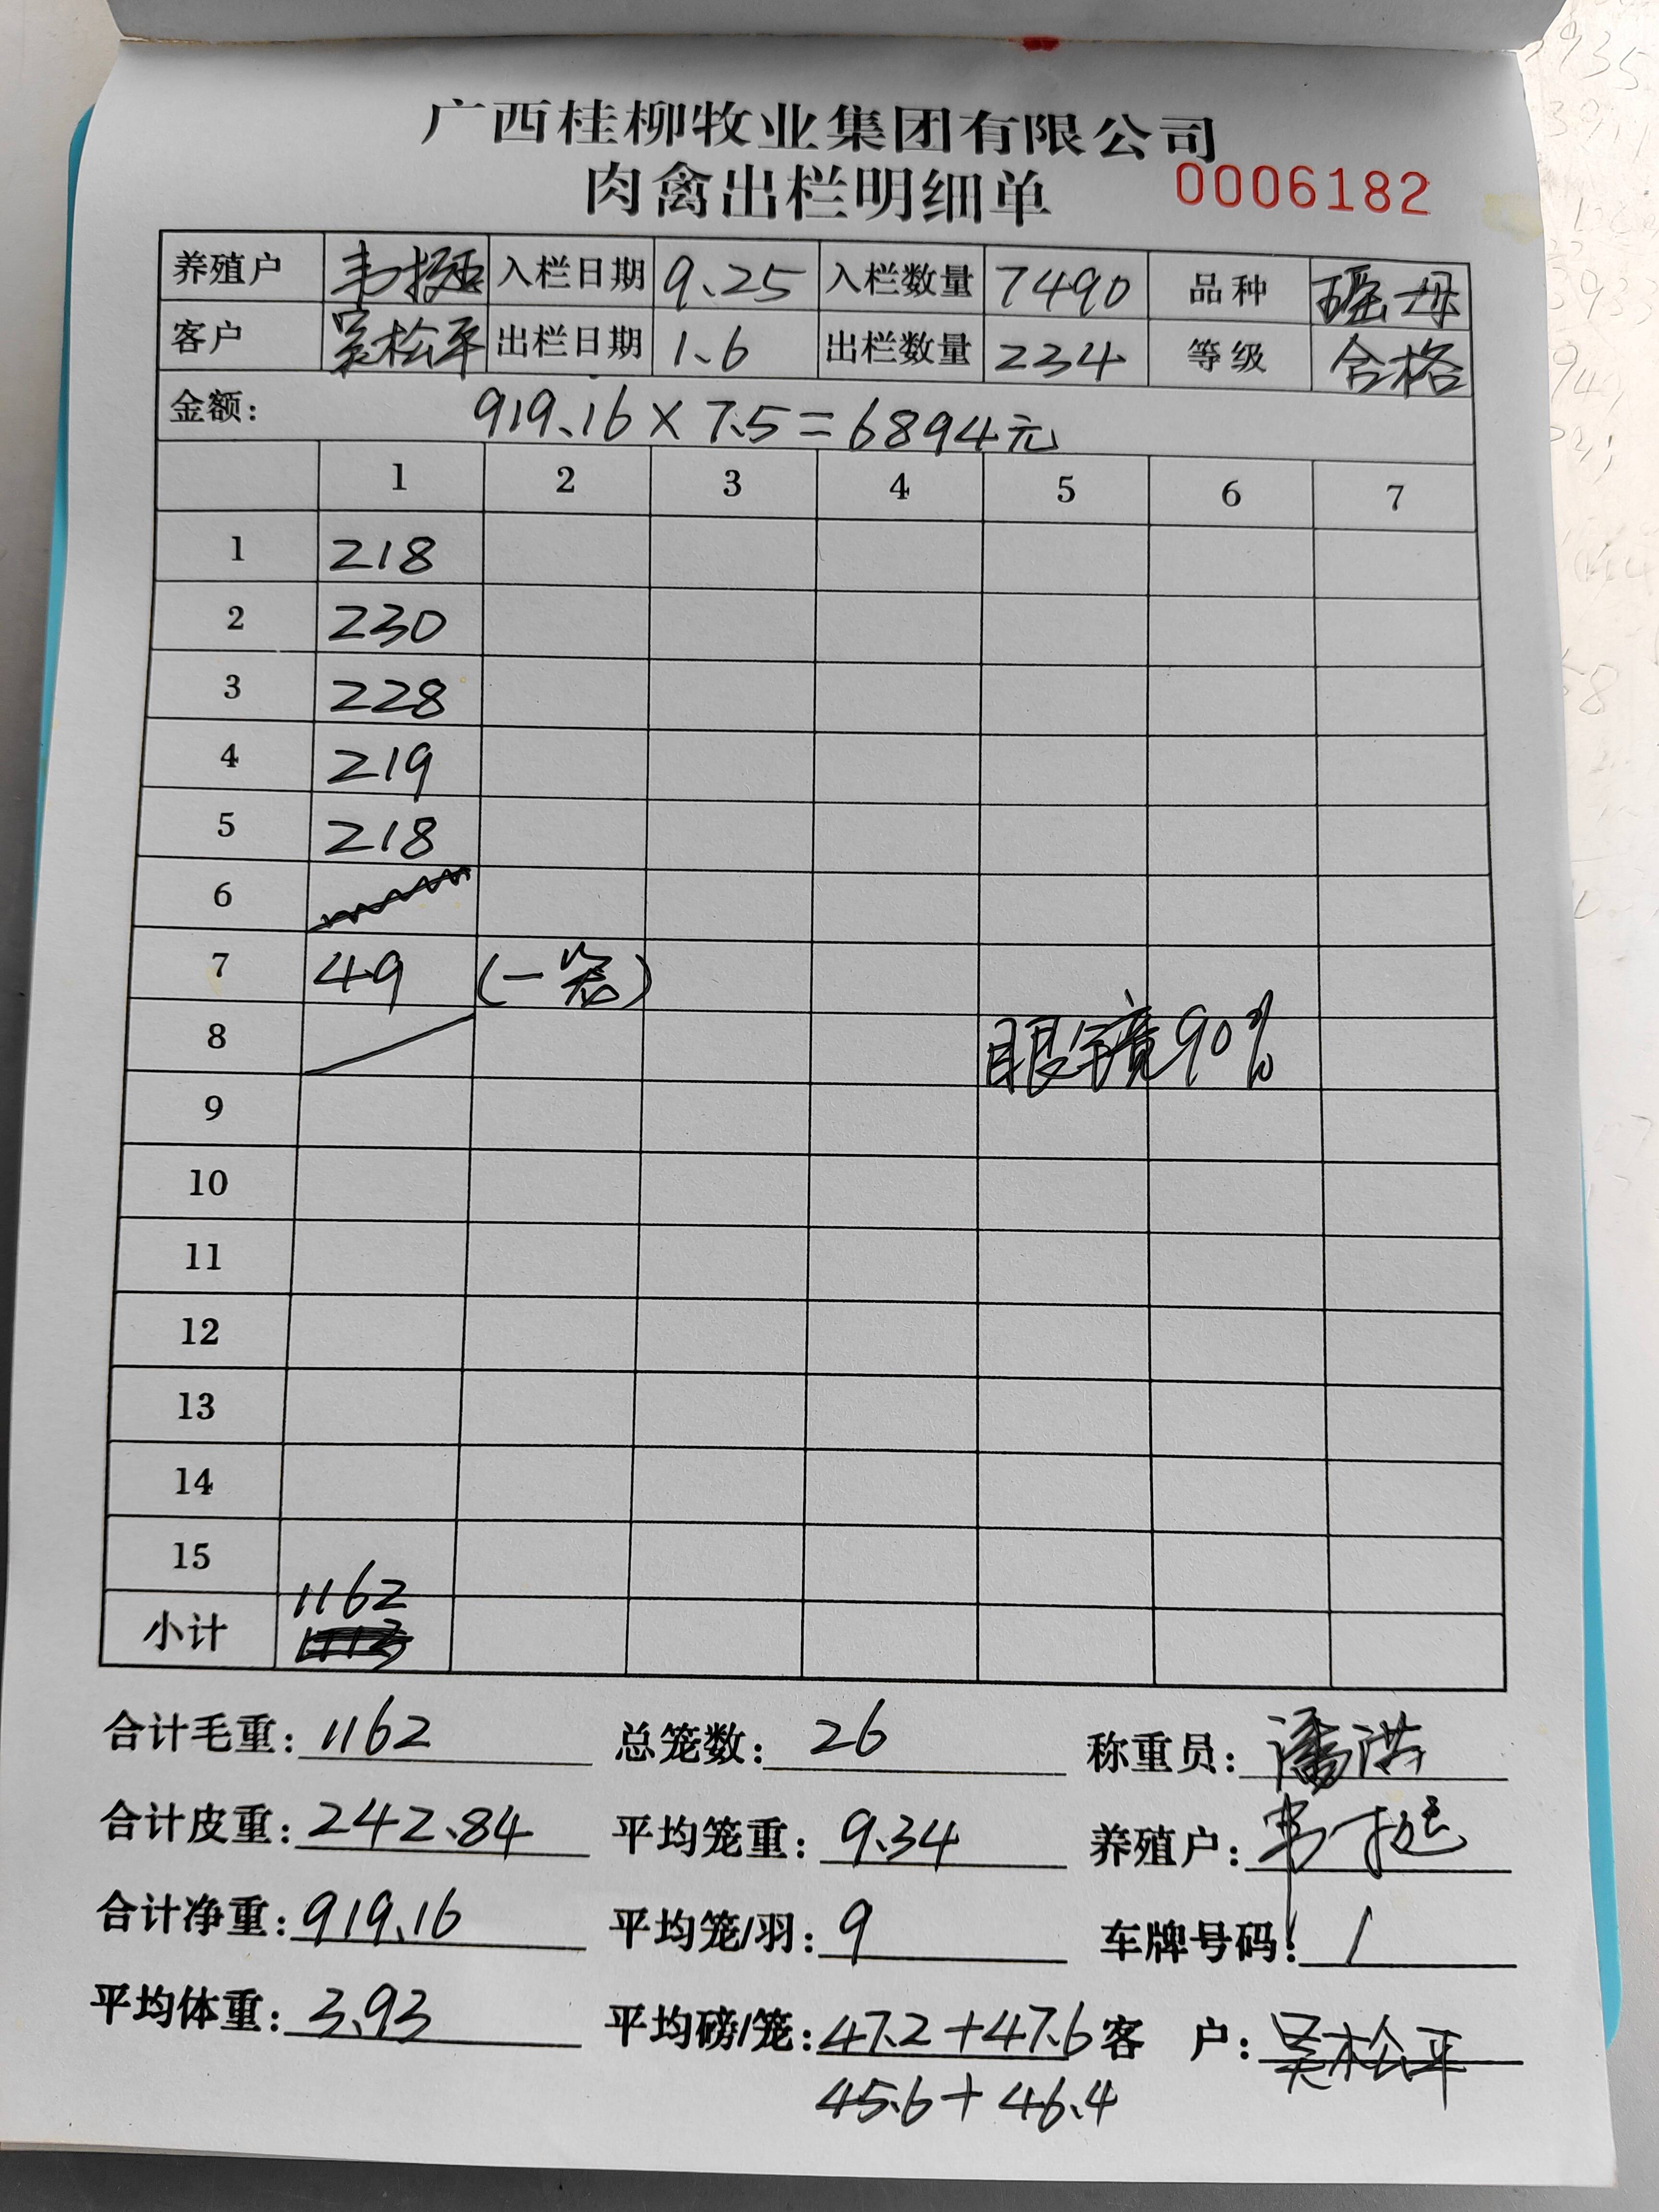 广西桂柳牧业集团有限公司
肉禽出栏明细单 0006182
养殖户 韦挺 入栏日期 9.25 入栏数量 7490 品种 瑶母
客户 吴松平 出栏日期 1.6 出栏数量 234 等级 合格
金额: 919.16×7.5=6894元
1 2 3 4 5 6 7
1 218
2 230
3 228
4 219
5 218
6
7 49 (一笼)
8 眼镜90%
9
10
11
12
13
14
15
小计 1162
合计毛重: 1162 总笼数: 26 称重员: 潘洪
合计皮重: 242.84 平均笼重: 9.34 养殖户: 韦挺
合计净重: 919.16 平均笼/羽: 9 车牌号码: /
平均体重: 3.93 平均磅/笼: 47.2+47.6 客 户: 吴松平
45.6+46.4